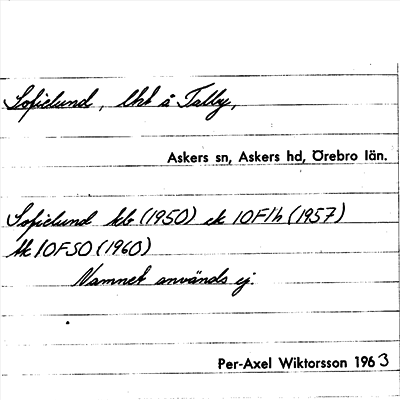 Sofielund, lht å Talby,
Askers sn, Askers hd, Örebro län.
Sofielund kb (1950) ek 10F1h (1957)
tk 10F SO (1960)
Namnet används ej.
Per-Axel Wiktorsson 1963